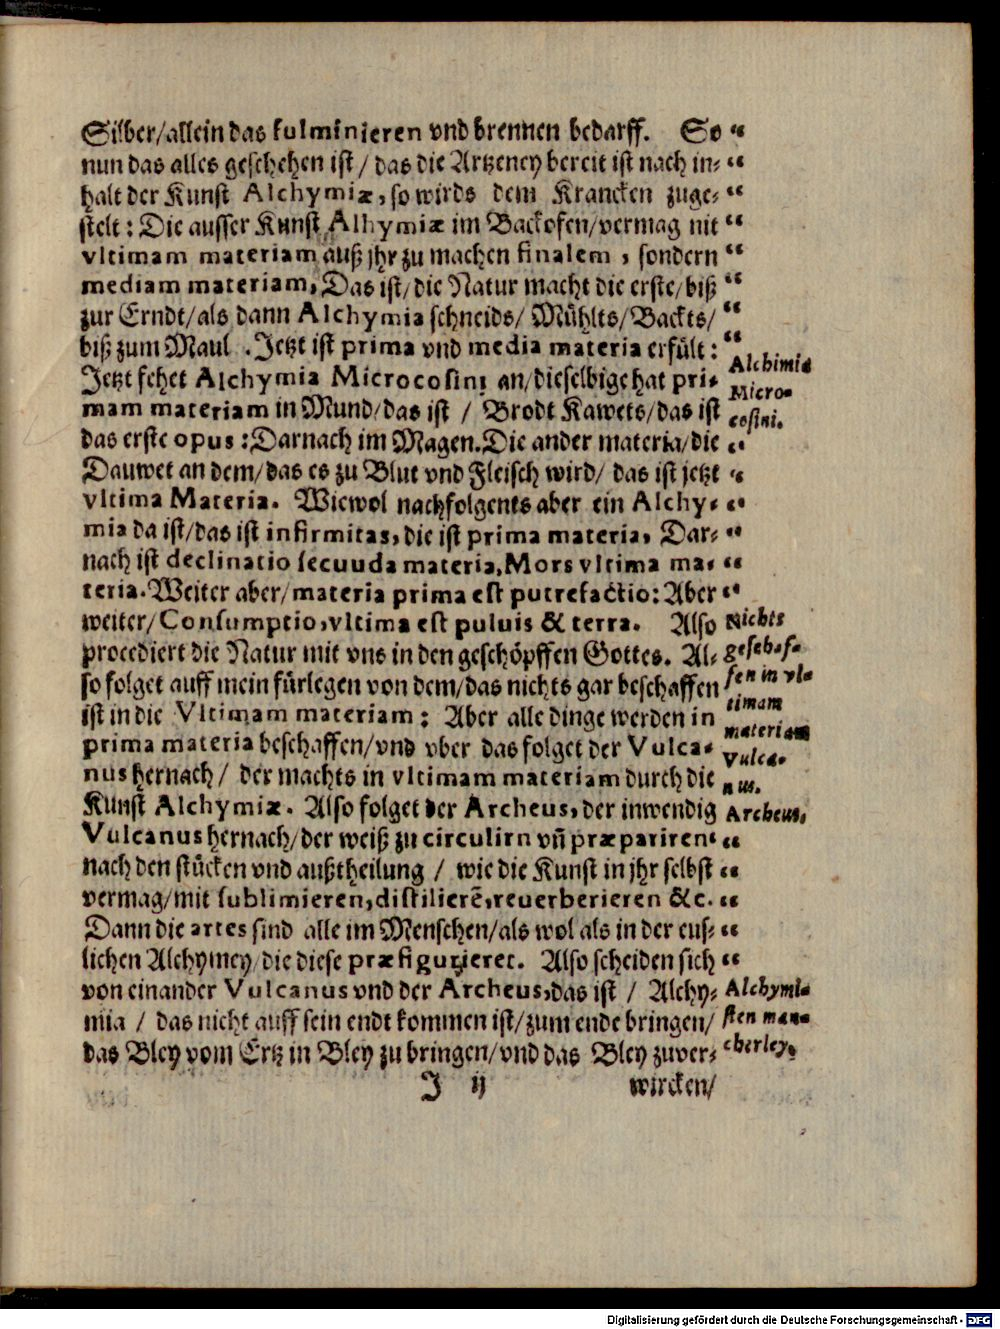 Silber/allein das fulminieren vnd brennen bedarff. So “
nun das alles geschehen ist / das die Artzeney bereit ist nach in- “
halt der Kunst Alchymiæ, so wirds dem Krancken zuge- “
stelt: Die ausser Kunst Alhymiæ im Backofen/vermag nit “
vltimam materiam auß jhr zu machen finalem , sondern “
mediam materiam, Das ist/die Natur macht die erste/biß “
zur Erndt/als dann Alchymia schneids/ Mühlts/Backts/ “
biß zum Maul . Jetzt ist prima vnd media materia erfült: “
Jetzt fehet Alchymia Microcosini an/dieselbige hat pri-
mam materiam in Mund/das ist / Brodt Kawets/das ist
das erste opus: Darnach im Magen. Die ander materia/die “
Dauwet an dem/das es zu Blut vnd Fleisch wird/ das ist jetzt “
vltima Materia. Wiewol nachfolgents aber ein Alchy- “
mia da ist/das ist infirmitas, die ist prima materia, Dar- “
nach ist declinatio secuuda materia, Mors vltima ma- “
teria. Weiter aber/materia prima est putrefactio: Aber “
weiter/Consumptio, vltima est puluis & terra. Also
procediert die Natur mit vns in den geschöpffen Gottes. Al-
so folget auff mein fürlegen von dem/das nichts gar beschaffen
ist in die Vltimam materiam: Aber alle dinge werden in
prima materia beschaffen/vnd vber das folget der Vulca-
nus hernach / der machts in vltimam materiam durch die
Kunst Alchymiæ. Also folget der Archeus, der inwendig
Vulcanus hernach/der weiß zu circulirn vñ præpariren “
nach den stücken vnd außtheilung / wie die Kunst in jhr selbst “
vermag/mit sublimieren, distilierẽ, reuerberieren &c. “
Dann die artes sind alle im Menschen/als wol als in der eus- “
lichen Alchymey/die diese præfigurieret. Also scheiden sich “
von einander Vulcanus vnd der Archeus, das ist / Alchy-
mia / das nicht auff sein endt kommen ist/zum ende bringen/
das Bley vom Ertz in Bley zu bringen/vnd das Bley zuver-
J ij wircken/
Alchimia
Micro-
cosini.
Nichts
geschaf-
fen in vl-
timam
materiam
Vulca-
nus.
Archeus,
Alchymi-
sten man-
cherley.
Digitalisierung gefördert durch die Deutsche Forschungsgemeinschaft - DFG